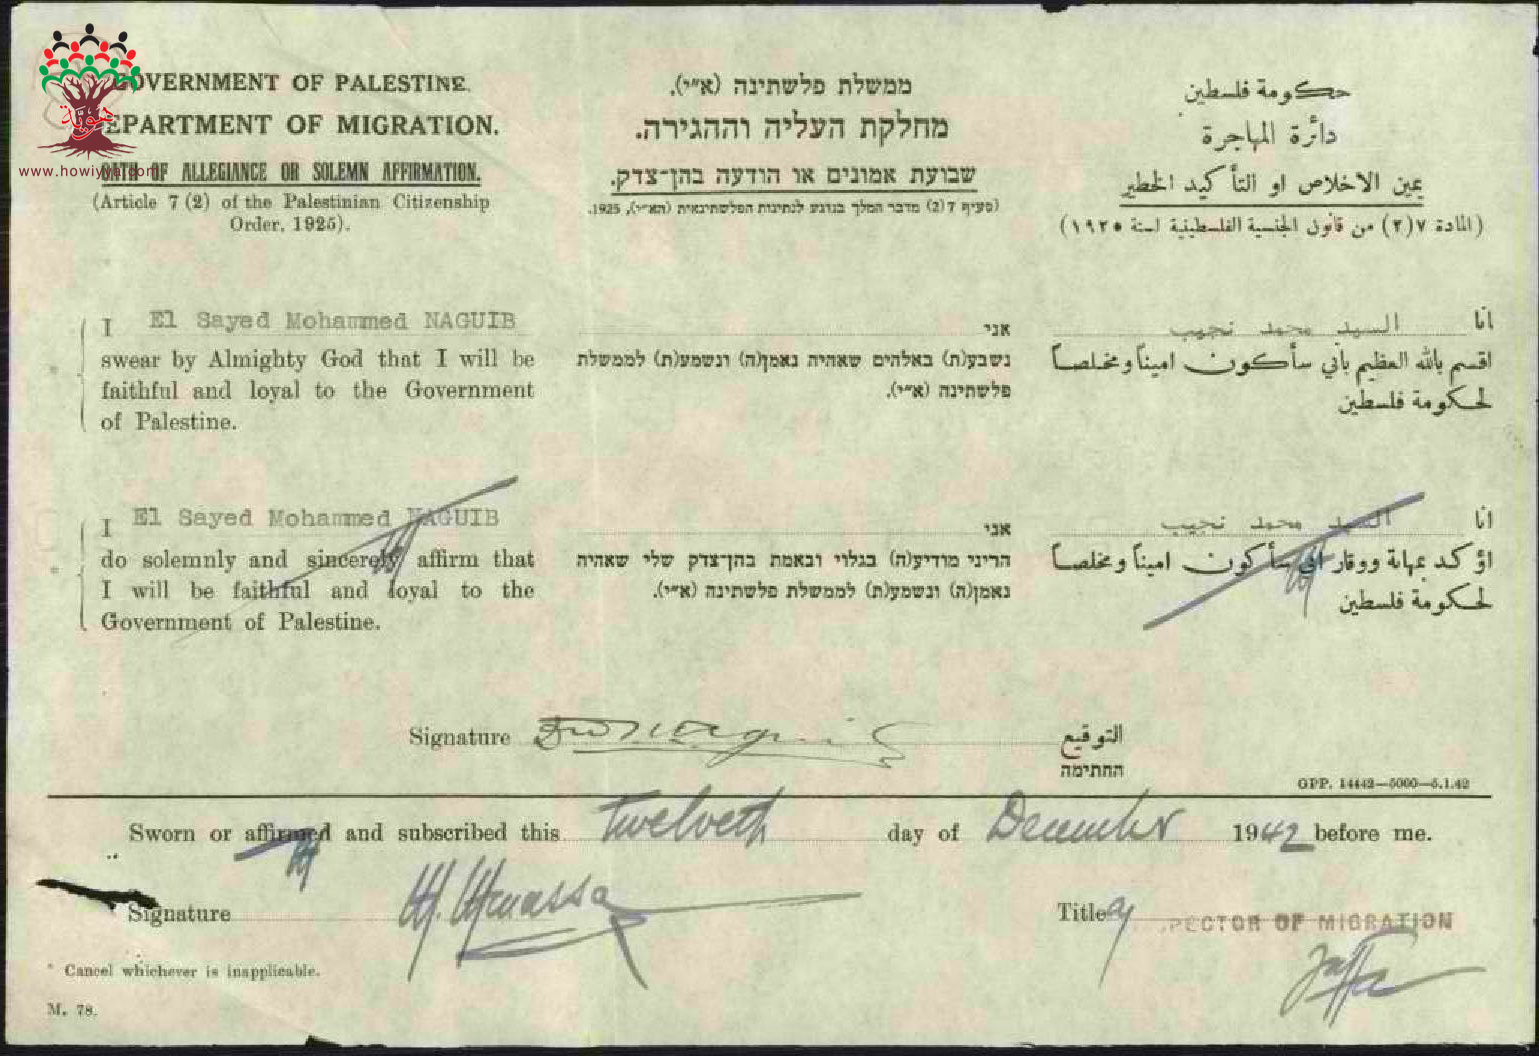 GOVERNMENT OF PALESTINE.
DEPARTMENT OF MIGRATION.
OATH OF ALLEGIANCE OR SOLEMN AFFIRMATION.
(Article 7 (2) of the Palestinian Citizenship
Order, 1925).
هوية
www.howiyya.com
ממשלת פלשתינה (א״י).
מחלקת העליה וההגירה.
שבועת אמונים או הודעה בהן־צדק.
(סעיף 7 (2) מדבר המלך בנוגע לנתינות הפלשתינאית (הא״י), 1925.
حكومة فلسطين
دائرة المهاجرة
يمين الاخلاص او التأكيد الخطير
(المادة ٧(٢) من قانون الجنسية الفلسطينية لسنة ١٩٢٥)
I El Sayed Mohammed NAGUIB
* swear by Almighty God that I will be
faithful and loyal to the Government
of Palestine.
אני
נשבע(ת) באלהים שאהיה נאמן(ה) ונשמע(ת) לממשלת
פלשתינה (א״י).
انا السيد محمد نجيب
اقسم بالله العظيم بأني سأكون اميناً ومخلصاً
لحكومة فلسطين
I El Sayed Mohammed NAGUIB
* do solemnly and sincerely affirm that
I will be faithful and loyal to the
Government of Palestine.
אני
הריני מודיע(ה) בגלוי ובאמת בהן־צדק שלי שאהיה
נאמן(ה) ונשמע(ת) לממשלת פלשתינה (א״י).
انا السيد محمد نجيب
اؤكد بمهابة ووقار اني سأكون اميناً ومخلصاً
لحكومة فلسطين
Signature التوقيع
החתימה
GPP. 14442—5000—5.1.42
Sworn or affirmed and subscribed this twelveth day of December 1942 before me.
Signature Title PECTOR OF MIGRATION
Jaffa
* Cancel whichever is inapplicable.
M. 78.